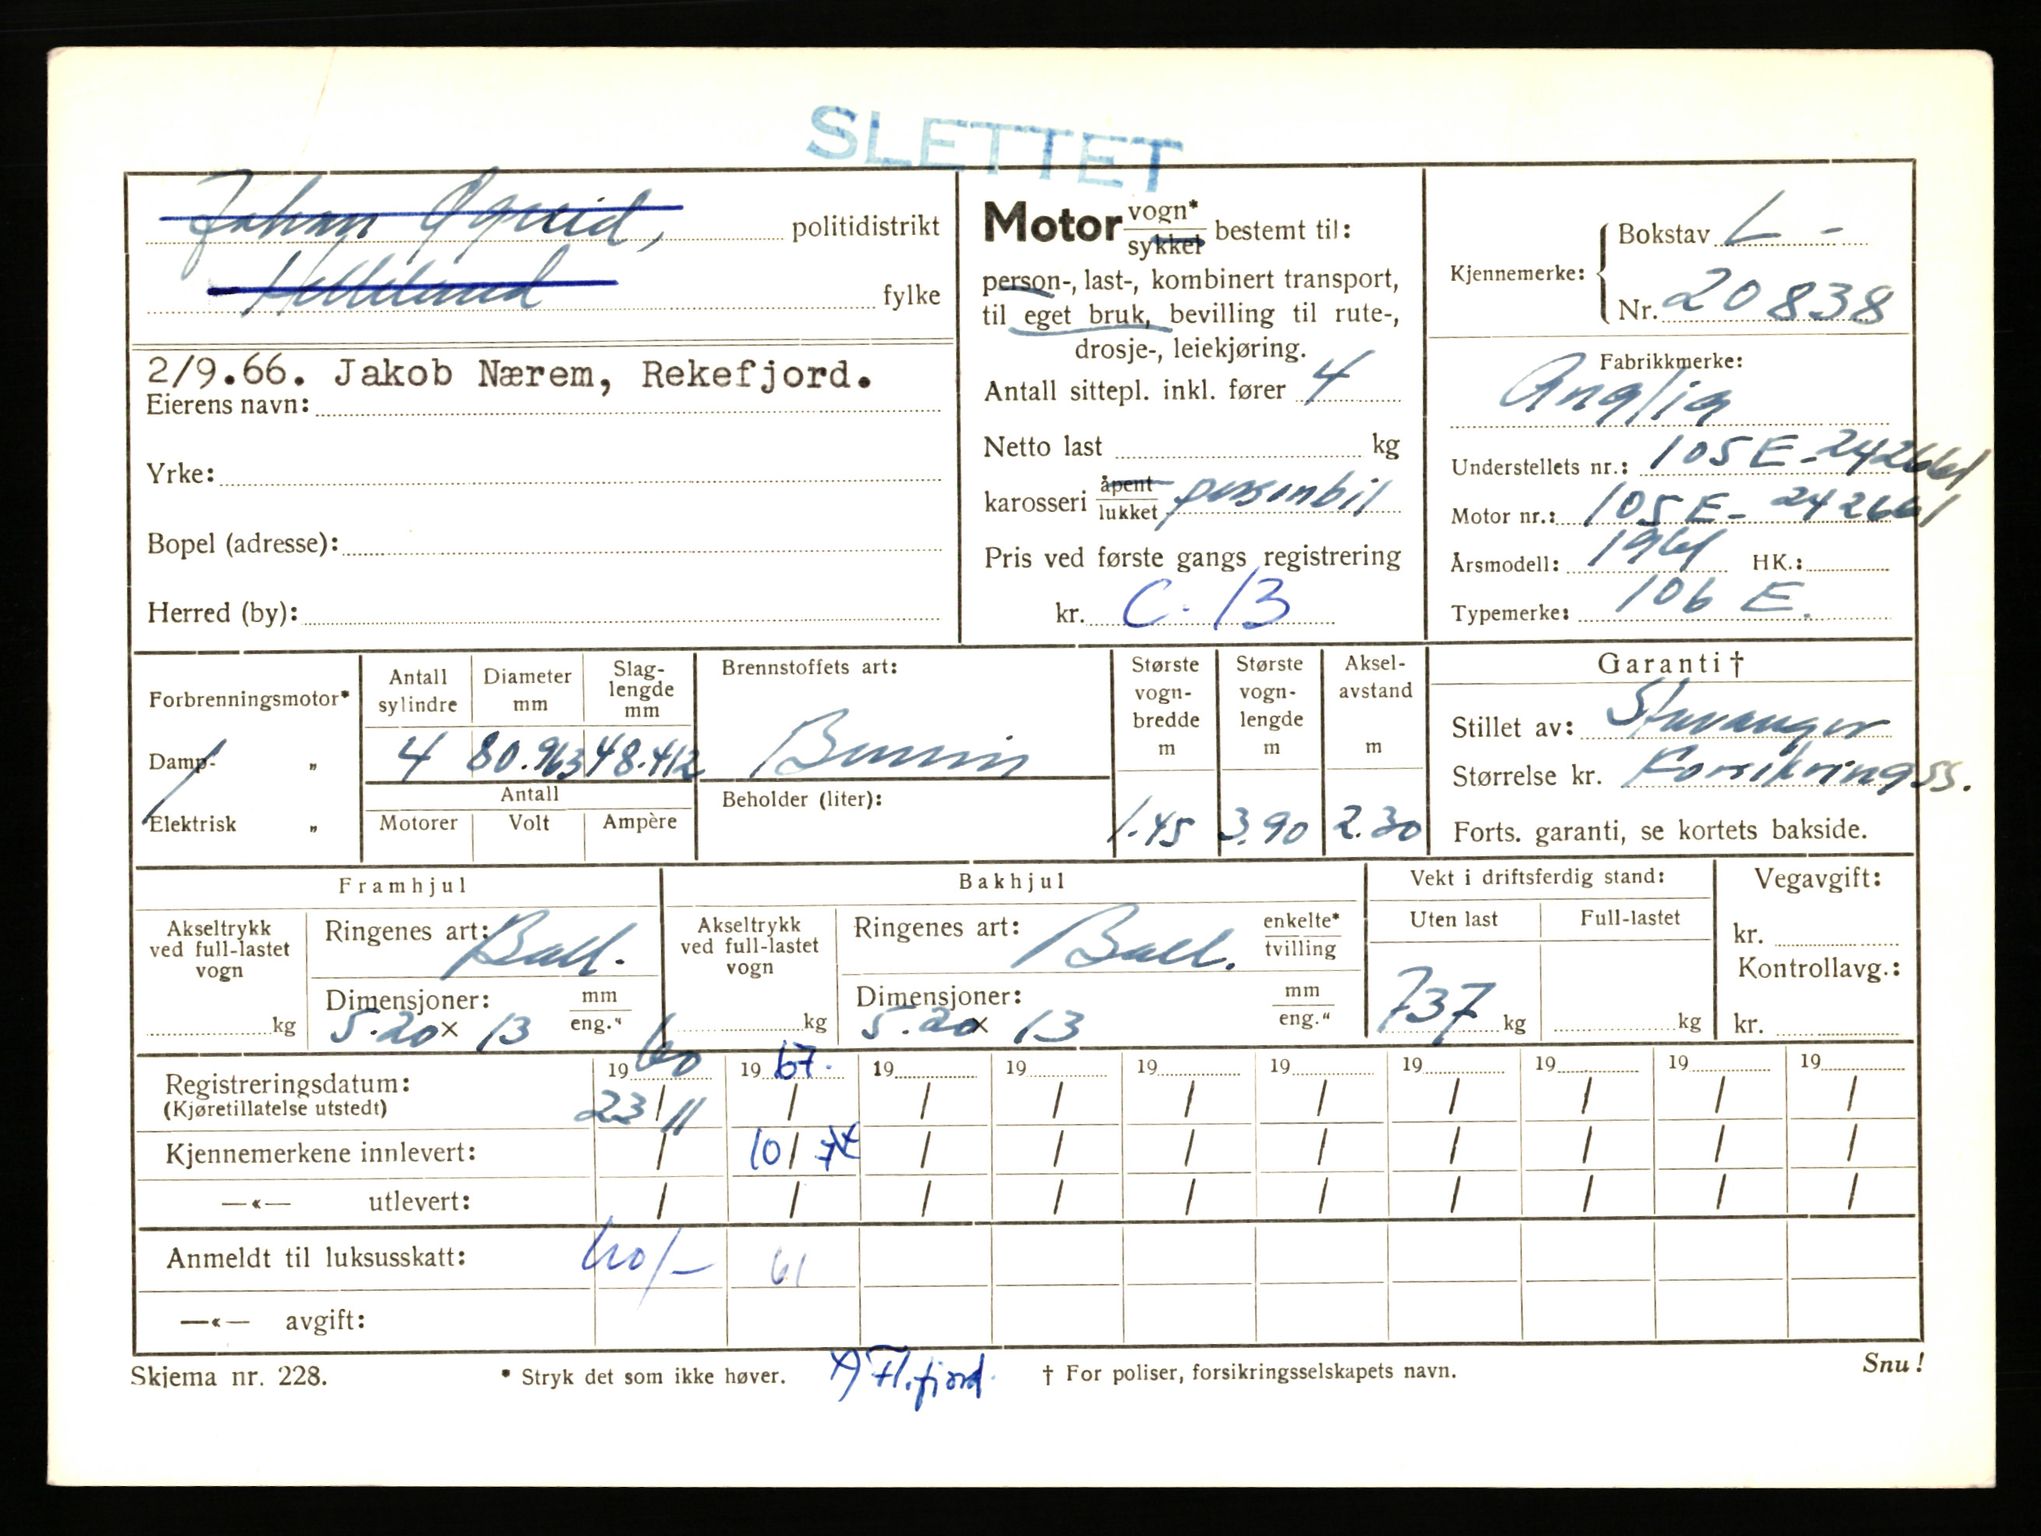 SLETTET
Johan Øgreid, politidistrikt
Helleland fylke
2/9.66. Jakob Nærem, Rekefjord.
Eierens navn:
Yrke:
Bopel (adresse):
Herred (by):
Motor vogn* sykkel bestemt til:
person-, last-, kombinert transport,
til eget bruk, bevilling til rute-,
drosje-, leiekjøring.
Antall sittepl. inkl. fører 4
Netto last kg
karosseri åpent lukket personbil
Pris ved første gangs registrering
kr. C. 13
Kjennemerke: Bokstav L -
Nr. 20838
Fabrikkmerke:
Anglia
Understellets nr.: 105E-242661
Motor nr.: 105E-242661
Årsmodell: 1961 HK.:
Typemerke: 106 E.
Forbrenningsmotor*
Damp- „
Elektrisk „
Antall sylindre Diameter mm Slag-lengde mm
4 80.963 48.412
Antall
Motorer Volt Ampère
Brennstoffets art:
Bensin
Beholder (liter):
Største vogn-bredde m
1.45
Største vogn-lengde m
3.90
Aksel-avstand m
2.30
Garanti †
Stillet av: Stavanger
Størrelse kr. Forsikringss.
Forts. garanti, se kortets bakside.
Framhjul
Akseltrykk ved full-lastet vogn
kg
Ringenes art: Ball.
Dimensjoner: mm eng."
5.20 x 13
Bakhjul
Akseltrykk ved full-lastet vogn
kg
Ringenes art: Ball. enkelte* tvilling
Dimensjoner: mm eng."
5.20 x 13
Vekt i driftsferdig stand:
Uten last Full-lastet
737 kg kg
Vegavgift:
kr.
Kontrollavg.:
kr.
1960 1967. 19 19 19 19 19 19 19 19
Registreringsdatum: 23/11 / / / / / / / / /
(Kjøretillatelse utstedt)
Kjennemerkene innlevert: / 10/ / / / / / / / /
—«— utlevert: / / / / / / / / / /
Anmeldt til luksusskatt: 60/- 61
—«— avgift:
Skjema nr. 228.
* Stryk det som ikke høver.
Fl.fjord.
† For poliser, forsikringsselskapets navn.
Snu!